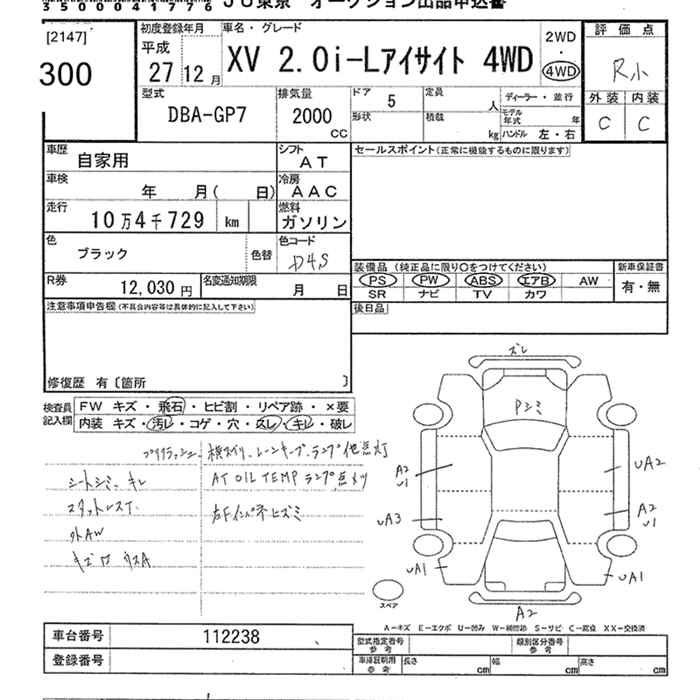 35000417776 JU東京 オークション出品申込書
[2147]
300
初度登録年月
平成
27 12 月
車名・グレード
XV 2.0i-Lアイサイト 4WD
2WD
・
4WD
評価点
R小
外装 内装
C C
型式
DBA-GP7
排気量
2000
CC
ドア 5
形状
定員 人
積載 kg
ディーラー・並行
モデル年式 年
ハンドル 左・右
車歴 自家用
シフト AT
セールスポイント(正常に機能するものに限ります)
車検 年 月( 日)
冷房 AAC
走行 10万4千729 km
燃料 ガソリン
色 ブラック
色替
色コード D4S
装備品 (純正品に限り○をつけてください)
新車保証書
PS PW ABS エアB AW
有・無
SR ナビ TV カワ
R券 12,030 円
名変通知期限 月 日
後日品
注意事項申告欄(不具合内容等は具体的に記入して下さい)
修復歴 有〔箇所 〕
検査員記入欄
FW キズ・飛石・ヒビ割・リペア跡・×要
内装 キズ・汚レ・コゲ・穴・スレ・キレ・破レ
ランプ他点灯
シートシミ、キレ
AT OIL TEMP ランプ点灯
スタットレスT
外AW
ズレ
Pシミ
A2
U1
UA3
UA1
UA2
A2
U1
UA1
A2
スペア
A-キズ E-エクボ U-凹み W-補修跡 S-サビ C-腐食 XX-交換済
車台番号 112238
登録番号
型式指定番号 参考
類別区分番号 参考
車庫証明用 参考
長さ cm
幅 cm
高さ cm